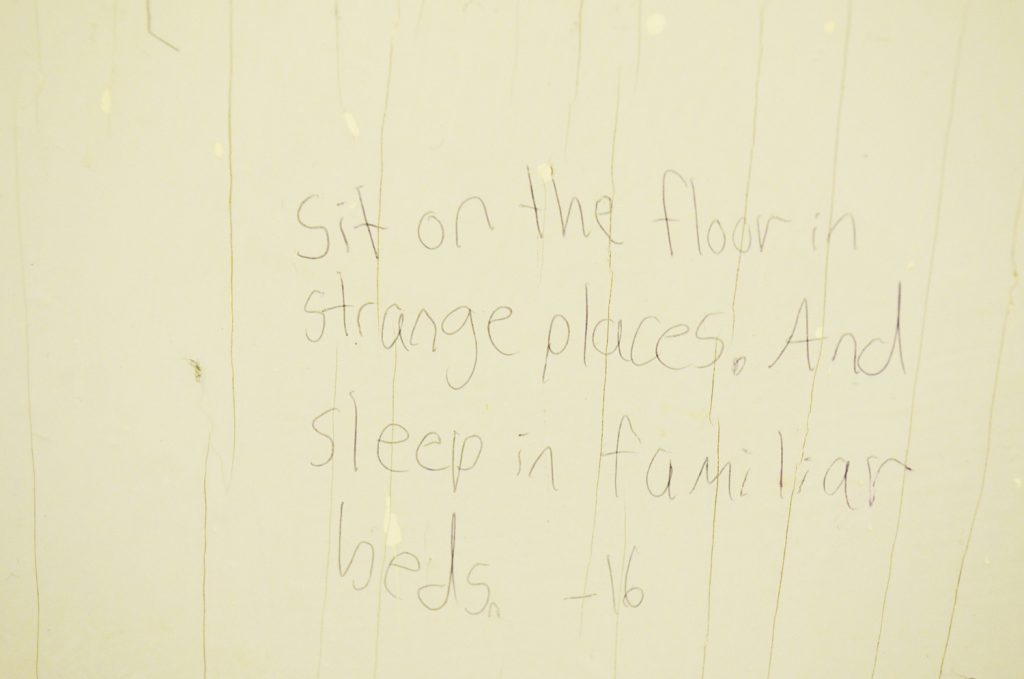 Sit on the floor in
strange places. And
sleep in familiar
beds. -16